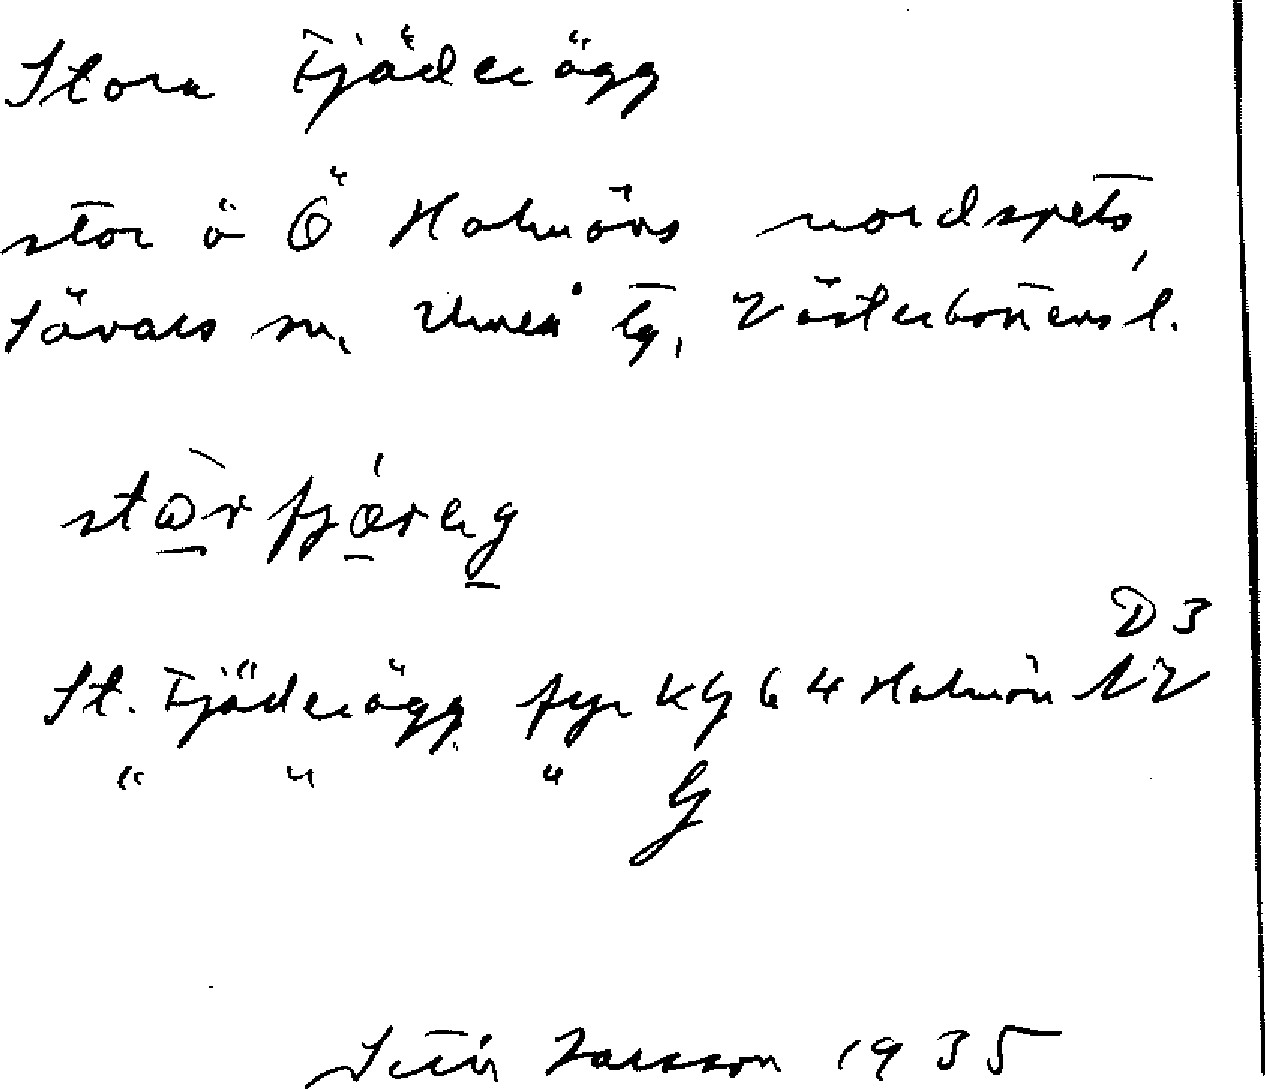 Stora Fjäderägg
stor ö Ö Holmöns nordspets,
Sävars sn, Umeå tg, Västerbottens l.
stɷ̀r fjǽreg
D3
St. Fjäderägg fyr KG 64 Holmön NV
" " " G
Setir Larsson 1935